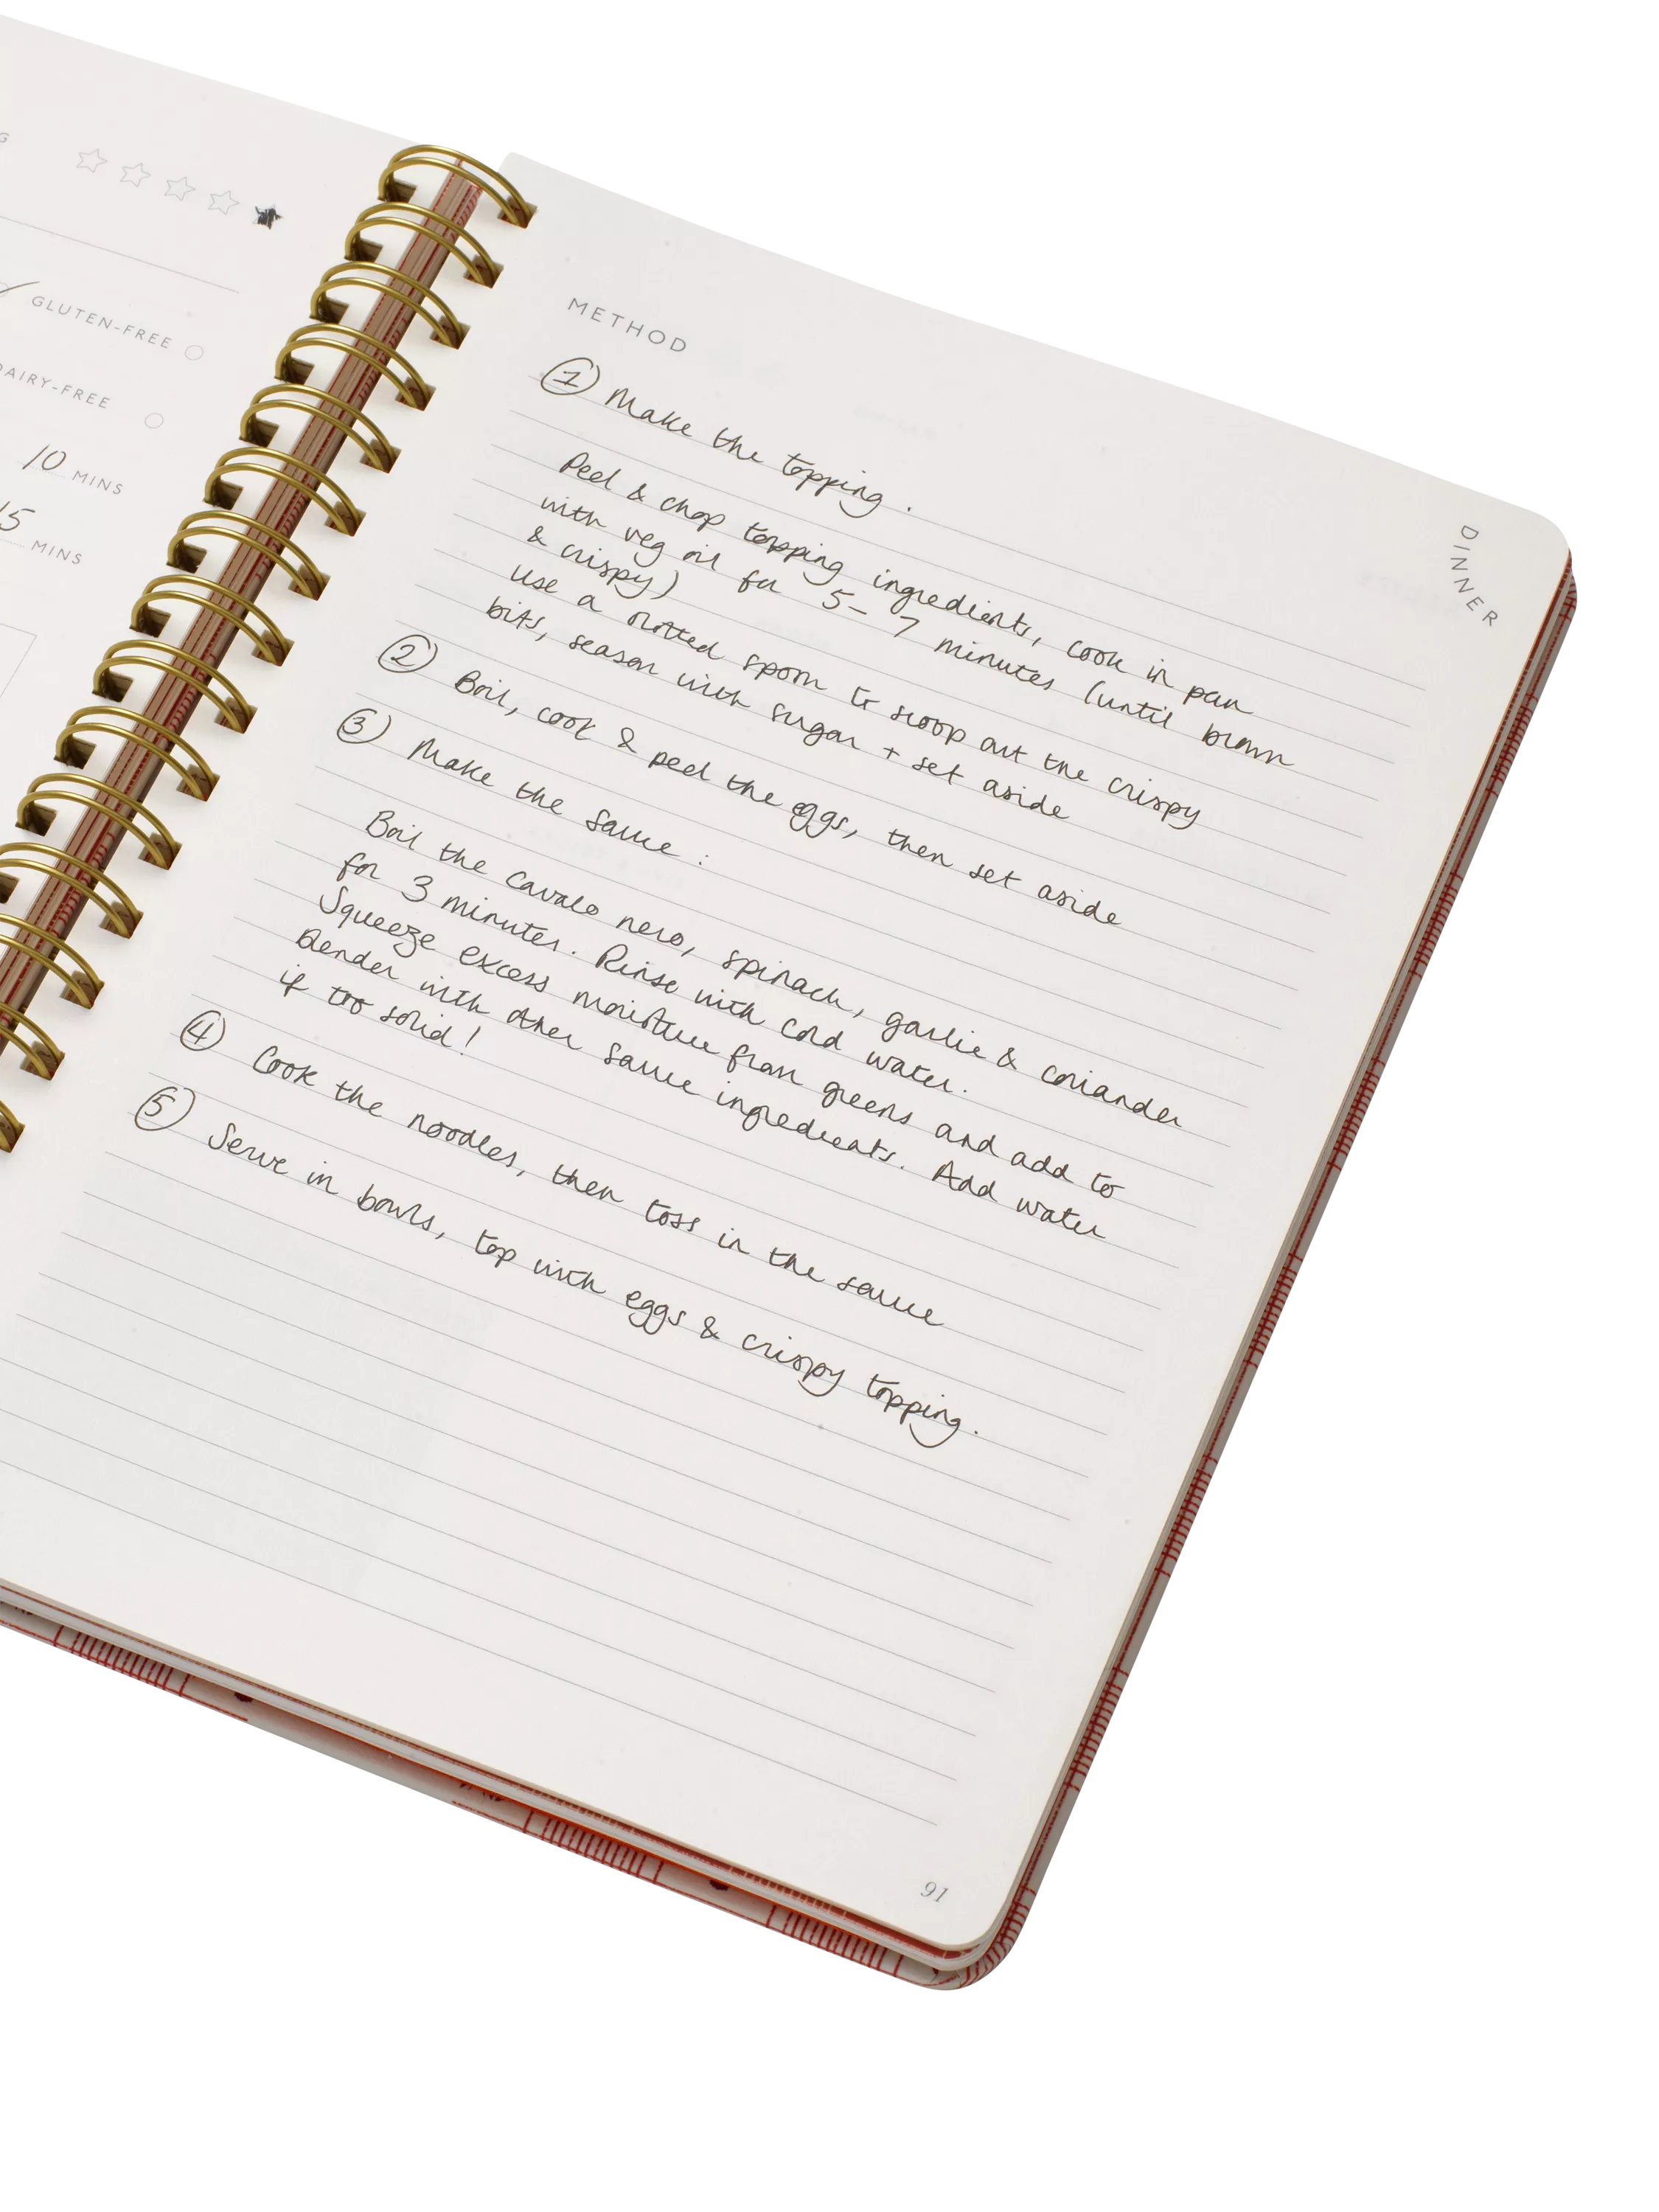 G
GLUTEN-FREE
DAIRY-FREE
10 MINS
15 MINS
METHOD
DINNER
1 Make the topping.
Peel & chop topping ingredients, cook in pan
with veg oil for 5-7 minutes (until brown
& crispy)
Use a slotted spoon to scoop out the crispy
bits, season with sugar + set aside
2 Boil, cook & peel the eggs, then set aside
3 Make the sauce:
Boil the cavalo nero, spinach, garlic & coriander
for 3 minutes. Rinse with cold water.
Squeeze excess moisture from greens and add to
blender with other sauce ingredients. Add water
if too solid!
4 Cook the noodles, then toss in the sauce
5 Serve in bowls, top with eggs & crispy topping.
91